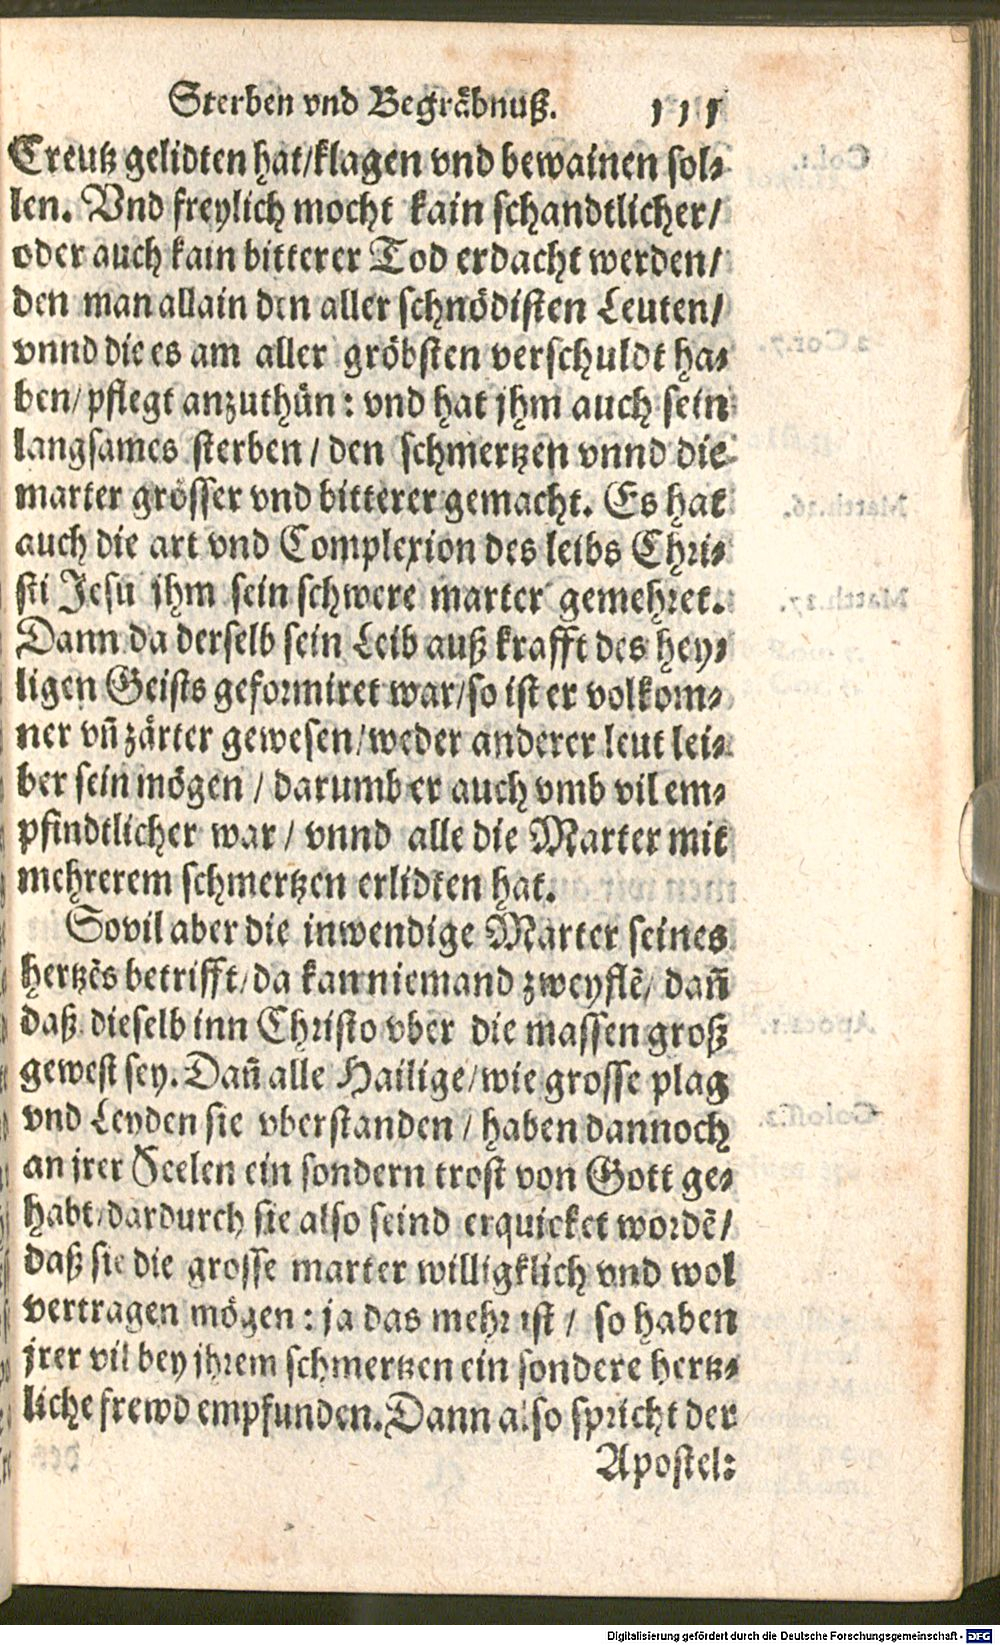 Sterben vnd Begräbnuß. 111
Creutz gelidten hat/klagen vnd bewainen sol-
len. Vnd freylich mocht kain schandtlicher/
oder auch kain bitterer Tod erdacht werden/
den man allain den aller schnödisten Leuten/
vnnd die es am aller gröbsten verschuldt ha-
ben/pflegt anzuthün: vnd hat jhm auch sein
langsames sterben / den schmertzen vnnd die
marter grösser vnd bitterer gemacht. Es hat
auch die art vnd Complexion des leibs Chri-
sti Jesu jhm sein schwere marter gemehret.
Dann da derselb sein Leib auß krafft des hey-
ligen Geists geformiret war/so ist er volkom-
ner vñ zärter gewesen/weder anderer leut lei-
ber sein mögen / darumb er auch vmb vil em-
pfindtlicher war / vnnd alle die Marter mit
mehrerem schmertzen erlidten hat.
Sovil aber die inwendige Marter seines
hertzēs betrifft/da kan niemand zweyflē/ dañ
daß dieselb inn Christo vber die massen groß
gewest sey. Dañ alle Hailige/wie grosse plag
vnd Leyden sie vberstanden / haben dannoch
an jrer Seelen ein sondern trost von Gott ge-
habt/dardurch sie also seind erquicket wordē/
daß sie die grosse marter willigklich vnd wol
vertragen mögen: ja das mehr ist / so haben
jrer vil bey jhrem schmertzen ein sondere hertz-
liche frewd empfunden. Dann also spricht der
Apostel:
Digitalisierung gefördert durch die Deutsche Forschungsgemeinschaft - DFG